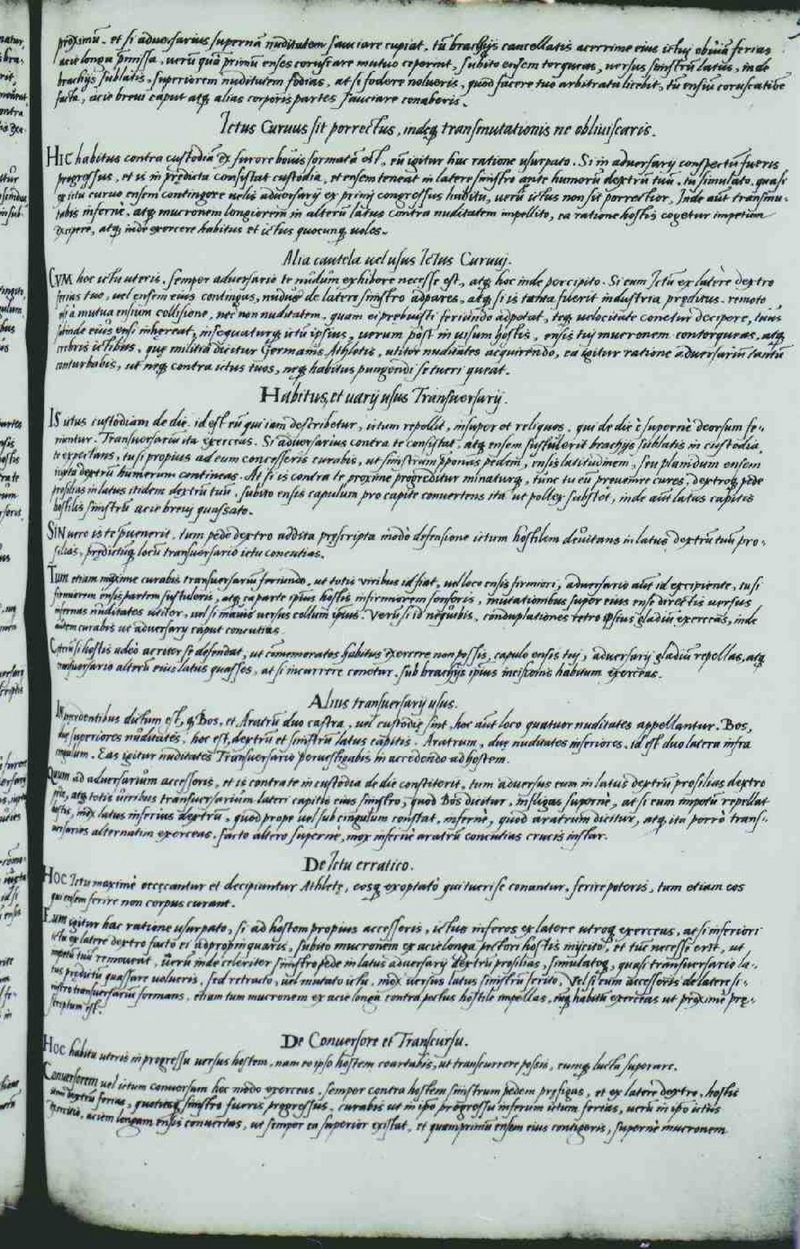 proximū. et si adversarius supernā nuditatem sauciare cupiat, tū brachijs cancellatis acerrime eius ictuj obviā ferias
acie longa praemissa, verū quā primū enses coruscare mutuo ceperint, subito ensem torqueas, versus sinistrū latus, inde
brachijs sublatis, superiorem nuditatem fodias, at si fodere nolueris, quod facere tuo arbitratu licebit, tū ensiū coruscatione
facta, acie brevi caput atq alias corporis partes sauciare conaberis.
Ictus Curuus sit porrectus, indeq transmutationis ne obliviscaris.
HIC habitus contra custodiā ex furore bovis formatā est, eū igitur hac ratione usurpato. Si in adversarij conspectū fueris
progressus, et is in praedicta consistat custodia, et ensem teneat in latere sinistro ante humerū dextrū tuū, tu simulato, quasi
ex ictu curuo ensem contingere velis adversarij ex primj congressus habitu, verū ictus non sit porrectior, Inde aūt transmu-
tabis inferne, atq mucronem longiorem in alterū latus contra nuditatem impellito, ea ratione hostis cogetur impetum
excipere, atq inde exercere habitus et ictus quocunq voles.
Alia cautela vel usus Ictus Curuuj.
CVM hoc ictu uteris, semper adversario te nudum exhibere necesse est, atq hoc inde percipito. Si cum Ictu ex latere dextro
ferias tuo, vel ensem eius contingas, nudus de latere sinistro adpares, atq si is tanta fuerit industria praeditus, remoto
a mutua ensium collisione, nec non nuditatem, quam ei praebuisti feriendo adpetat, teq velocitate conetur decipere, tuus
subinde eius ensi inhereat, insequaturq ictū ipsius, verum post in visum hostis, ensis tuj mucronem contorqueas, atq
crebris ictibus, quae militia dicitur Germanis Athletis, utitor nuditates acquirendo, ea igitur ratione adversariū tantū
conturbabis, ut neq contra ictus tuos, neq habitus pungendi se tueri queat.
Habitus, et varij usus Transversarij.
IS ictus custodiam de die, id est eū qui iam describetur, ictum repellit, insuper et reliquos, qui de die è supernè deorsum fe-
riuntur. Transversariū ita exerceas. Si adversarius contra te consistat, atq ensem sustulerit brachijs sublatis in custodia
te expectans, tu si propius ad eum concesseris curabis, ut sinistrum praeponas pedem, ensis latitudinem, seu planidum ensem
iuxta dextrū humerum contineas. At si is contra te proxime progreditur minaturq, tunc tu eū prevenire cures, dextroq pede
prosilias in latus itidem dextrū tuū, subito ensis capulum pro capite convertens ita ut pollex substet, inde aūt latus capitis
hostilis sinistrū acie brevj quassato.
SIN vero is te praevenerit, tum pede dextro addita praescripta modo defensione ictum hostilem devitans in latus dextrū tuū pro-
silias, praedictūq locū transversario ictu concutias.
Tum etiam maxime curabis transversariū feriendo, ut totis viribus id fiat, vel loco ensis firmiori, adversario aūt id excipiente, tu si
firmiorem ensis partem sustuleris, atq caparte ipsius hostis infirmiorem senseris, mutationibus super eius ense directis versus
infernas nuditates utitor, vel si manū versus collum ipsius. Verū si id nequibis, conduplationes retro ipsius gladiū exerceas, inde
autem curabis ut adversarij caput concutias.
Caeterū si hostis adeò acriter se defendat, ut comemoratos habitus exercere non possis, capulo ensis tuj, adversarij gladiū repellas, atq
transversario alterū eius latus quasses, at si incurrere conetur, sub brachijs ipsius incisionis habitum exerceas.
Alius transversarij usus.
In precedentibus dictum est, q Bos, et Aratrū duo castra, vel custodiae sint, hoc aūt loco quatuor nuditates appellantur. Bos,
due superiores nuditates, hoc est, dextrū et sinistrū latus capitis. Aratrum, duae nuditates inferiores, id est duo latera infra
cingulum. Eas igitur nuditates Transversario pervestigabis in accedendo ad hostem.
Quum ad adversarium accesseris, et is contra te in custodia de die constiterit, tum adversus eum in latus dextrū prosilias dextro
pede, atq totis viribus transversarium lateri capitis eius sinistro, quod Bos dicitur, infligas superne, at si eum impetū repellat
ictus, mox latus inferius dextrū, quod prope vel sub cingulum constat, infernè, quod aratrum dicitur, atq ita porrò trans-
versarios alternatim exerceas, facto altero supernè, mox inferne aratrū concutias crucis instar.
De Ictu erratico.
HOC Ictu maximè occaecantur et decipiuntur Athletae, eosq exoptatò qui tueri se conantur, ferire poteris, tum etiam eos
qui ensem ferire non corpus curant.
Eum igitur hac ratione usurpato, si ad hostem propius accesseris, ictus inferos ex latere utroq exerceas, at si inferiori
ictu ex latere dextro facto ei adpropinquaris, subito mucronem ex acie longa pectori hostis inijcito, et tūc necesse erit, ut
impetū tuū removeat, verū inde celeriter sinistro pede in latus adversarij dextrū prosilias, simulatoq, quasi transversario la-
tus praedictū quassare volueris, sed retracto, vel mutato ictu, mox versus latus sinistrū ferito, Vel si cum accesseris de latere si-
nistro transversarium formans, etiam tum mucronem ex acie longa contra pectus hostile impellas, eūq habitū exerceas ut proximè prae-
scriptum est.
De Conversore et Transcursu.
HOC habitu uteris in progressu versus hostem, nam eo ipso hostem coartabis, ut transcurrere possis, eumq lucta superare.
Conversorem vel ictum conversum hoc modo exerceas, semper contra hostem sinistrum pedem praefigas, et ex latere dextro, hostis
visui dextrū ferias, quotiesq sinistro fueris progressus, curabis ut in ipso progressu inferum ictum ferias, verū in ipso ictus
exercitio, aciem longam ensis convertas, ut semper ea superior existat, et quamprimū ensem eius contigeris, supernè mucronem